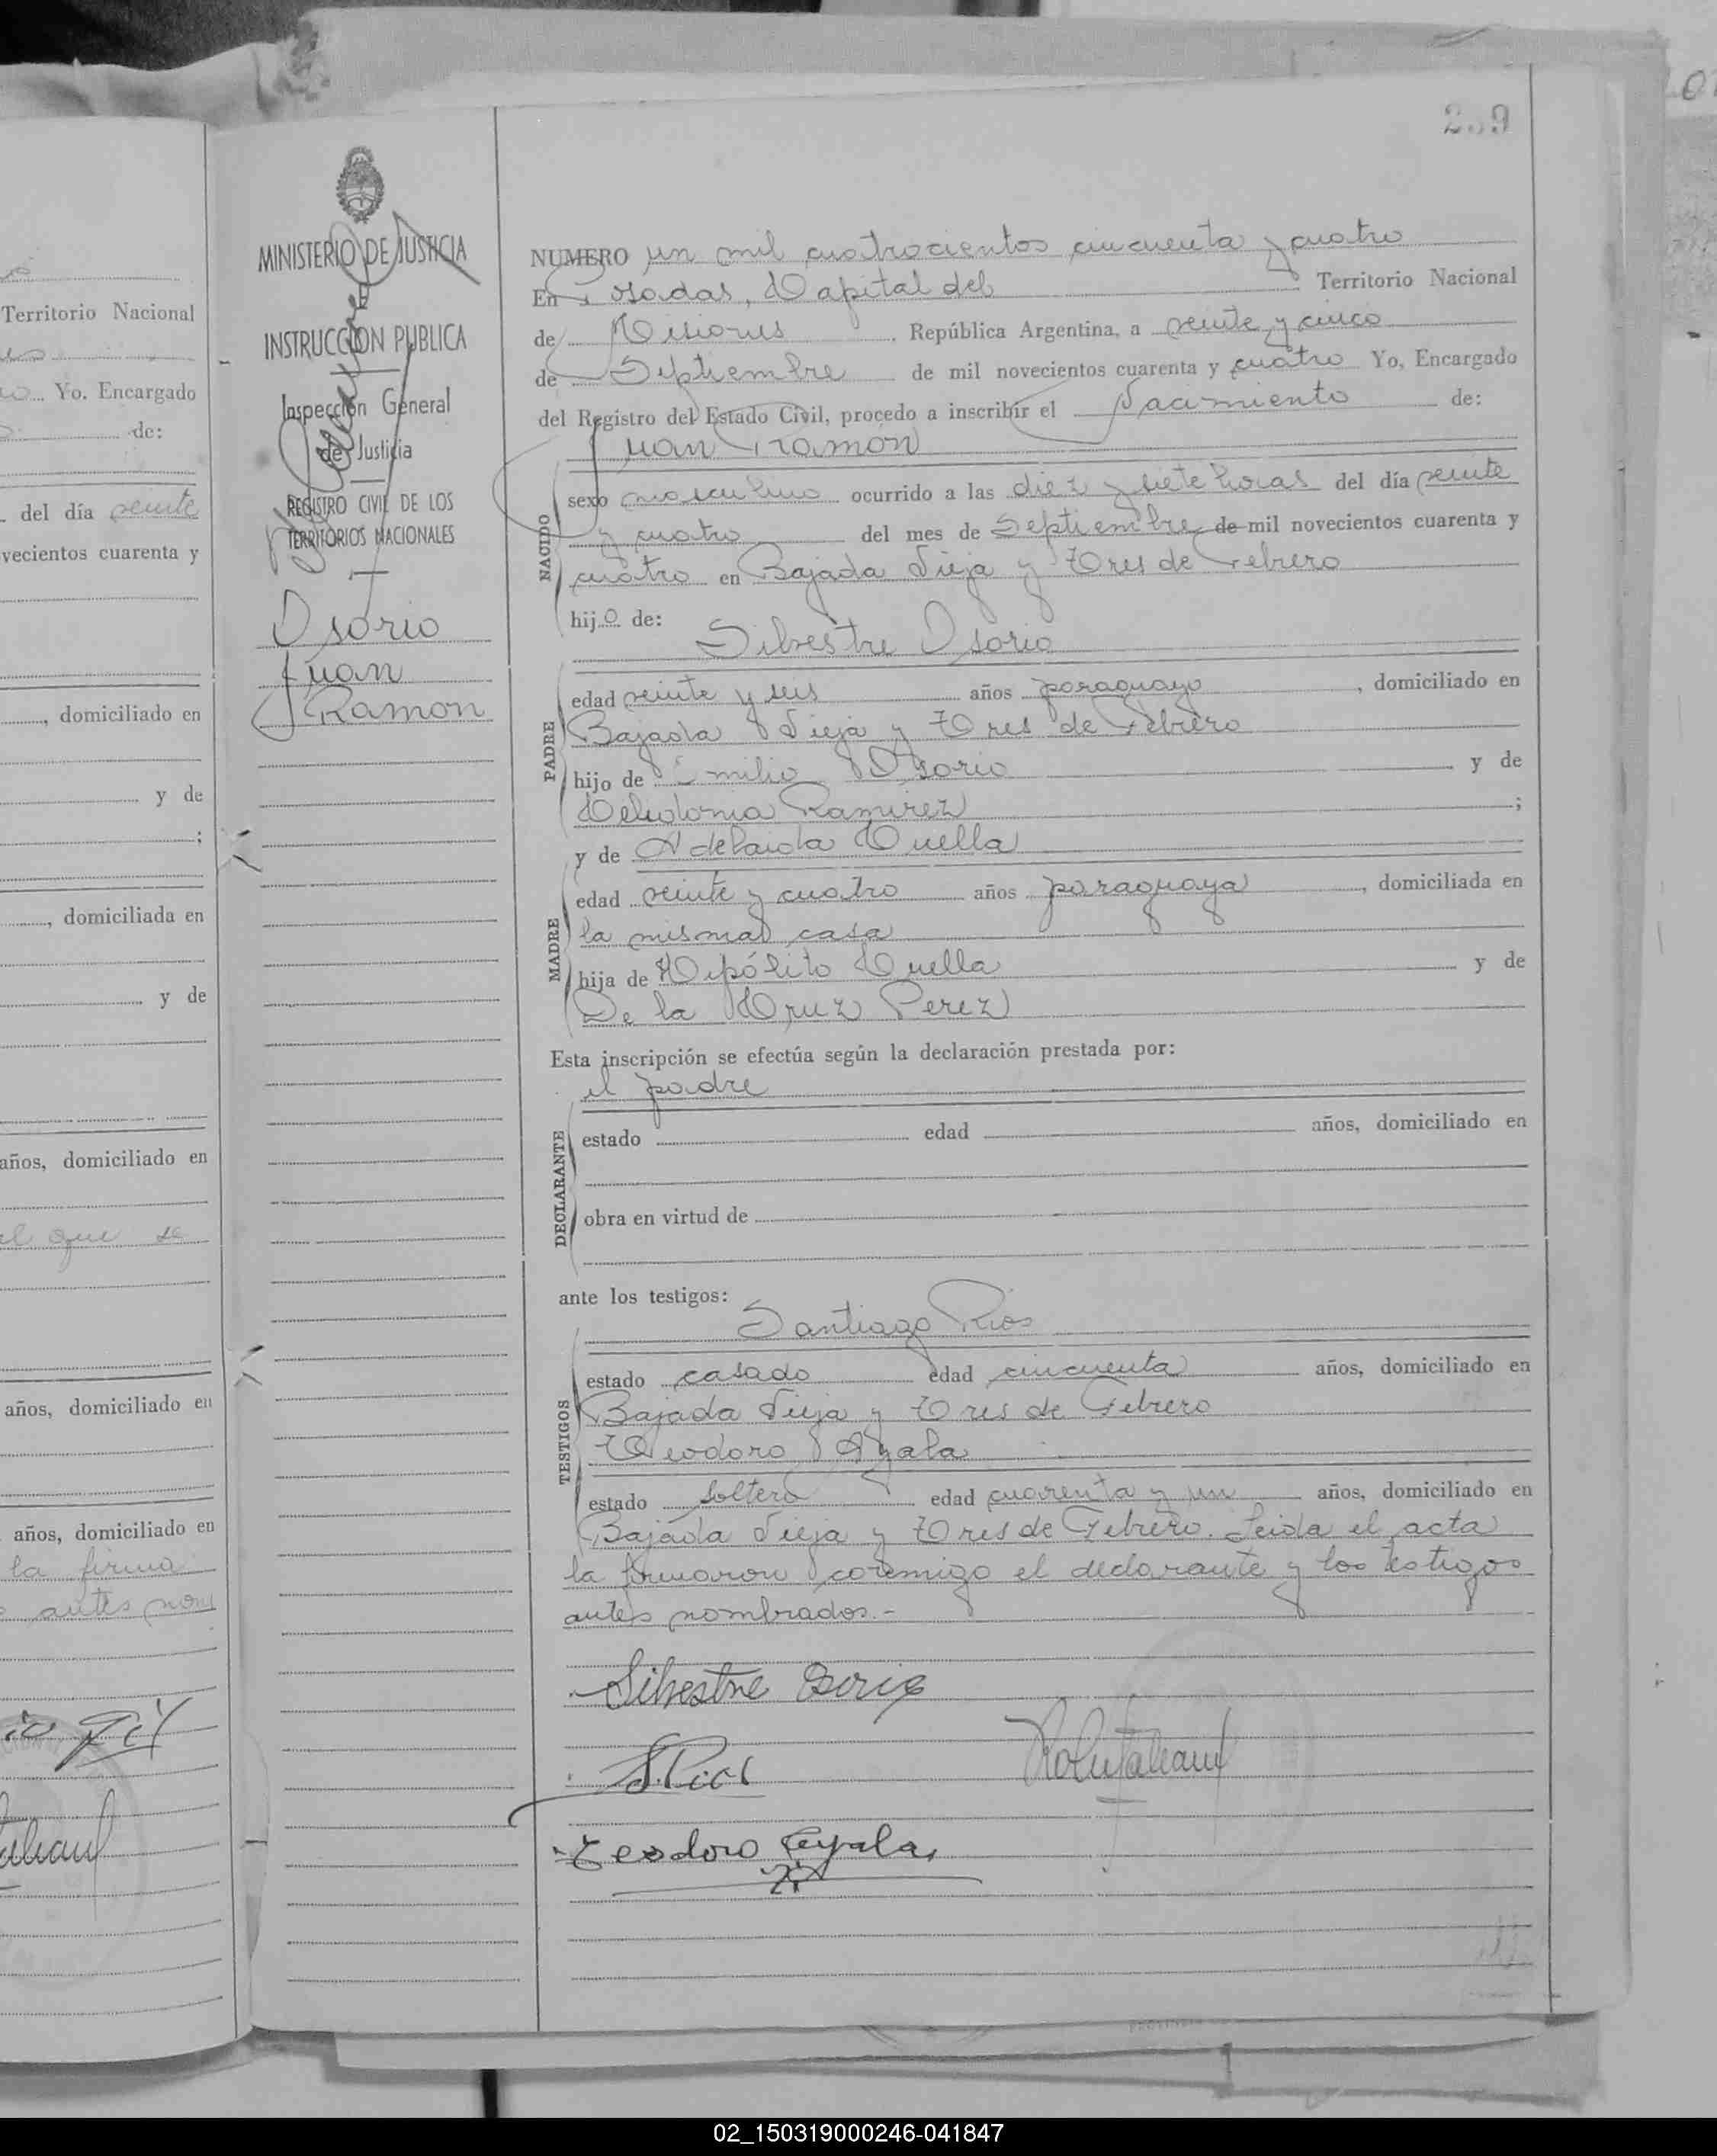 Territorio Nacional
Yo. Encargado
de:
del día veinte
vecientos cuarenta y
domiciliado en
y de
;
domiciliada en
y de
años, domiciliado en
el que se
años, domiciliado en
años, domiciliado en
la firma
antes nom
MINISTERIO DE JUSTICIA
E
INSTRUCCION PUBLICA
Inspección General
de Justicia
REGISTRO CIVIL DE LOS
TERRITORIOS NACIONALES
Osorio
Juan
Ramon
NUMERO un mil cuatrocientos cincuenta y cuatro
En Posadas, Capital del Territorio Nacional
de Misiones República Argentina, a veinte y cinco
de Septiembre de mil novecientos cuarenta y cuatro Yo, Encargado
del Registro del Estado Civil, procedo a inscribir el Nacimiento de:
Juan Ramon
NACIDO
sexo masculino ocurrido a las diez y siete horas del día veinte
y cuatro del mes de Septiembre de mil novecientos cuarenta y
cuatro en Bajada Vieja y Tres de Febrero
hijo de:
Silvestre Osorio
PADRE
edad veinte y seis años paraguayo, domiciliado en
Bajada Vieja y Tres de Febrero
hijo de Emilio Osorio y de
Celidonia Ramirez ;
y de Adelaida Cuella
MADRE
edad veinte y cuatro años paraguaya, domiciliada en
la misma casa
hija de Hipólito Cuella y de
De la Cruz Perez
Esta inscripción se efectúa según la declaración prestada por:
el padre
DECLARANTE
estado edad años, domiciliado en
obra en virtud de
ante los testigos:
Santiago Rios
TESTIGOS
estado casado edad cincuenta años, domiciliado en
Bajada Vieja y Tres de Febrero
Teodoro Ayala
estado soltero edad cuarenta y un años, domiciliado en
Bajada Vieja y Tres de Febrero. Leida el acta
la firmaron conmigo el declarante y los testigos
antes nombrados.-
Silvestre Osorio
S. Rios
Teodoro Ayala
02_150319000246-041847